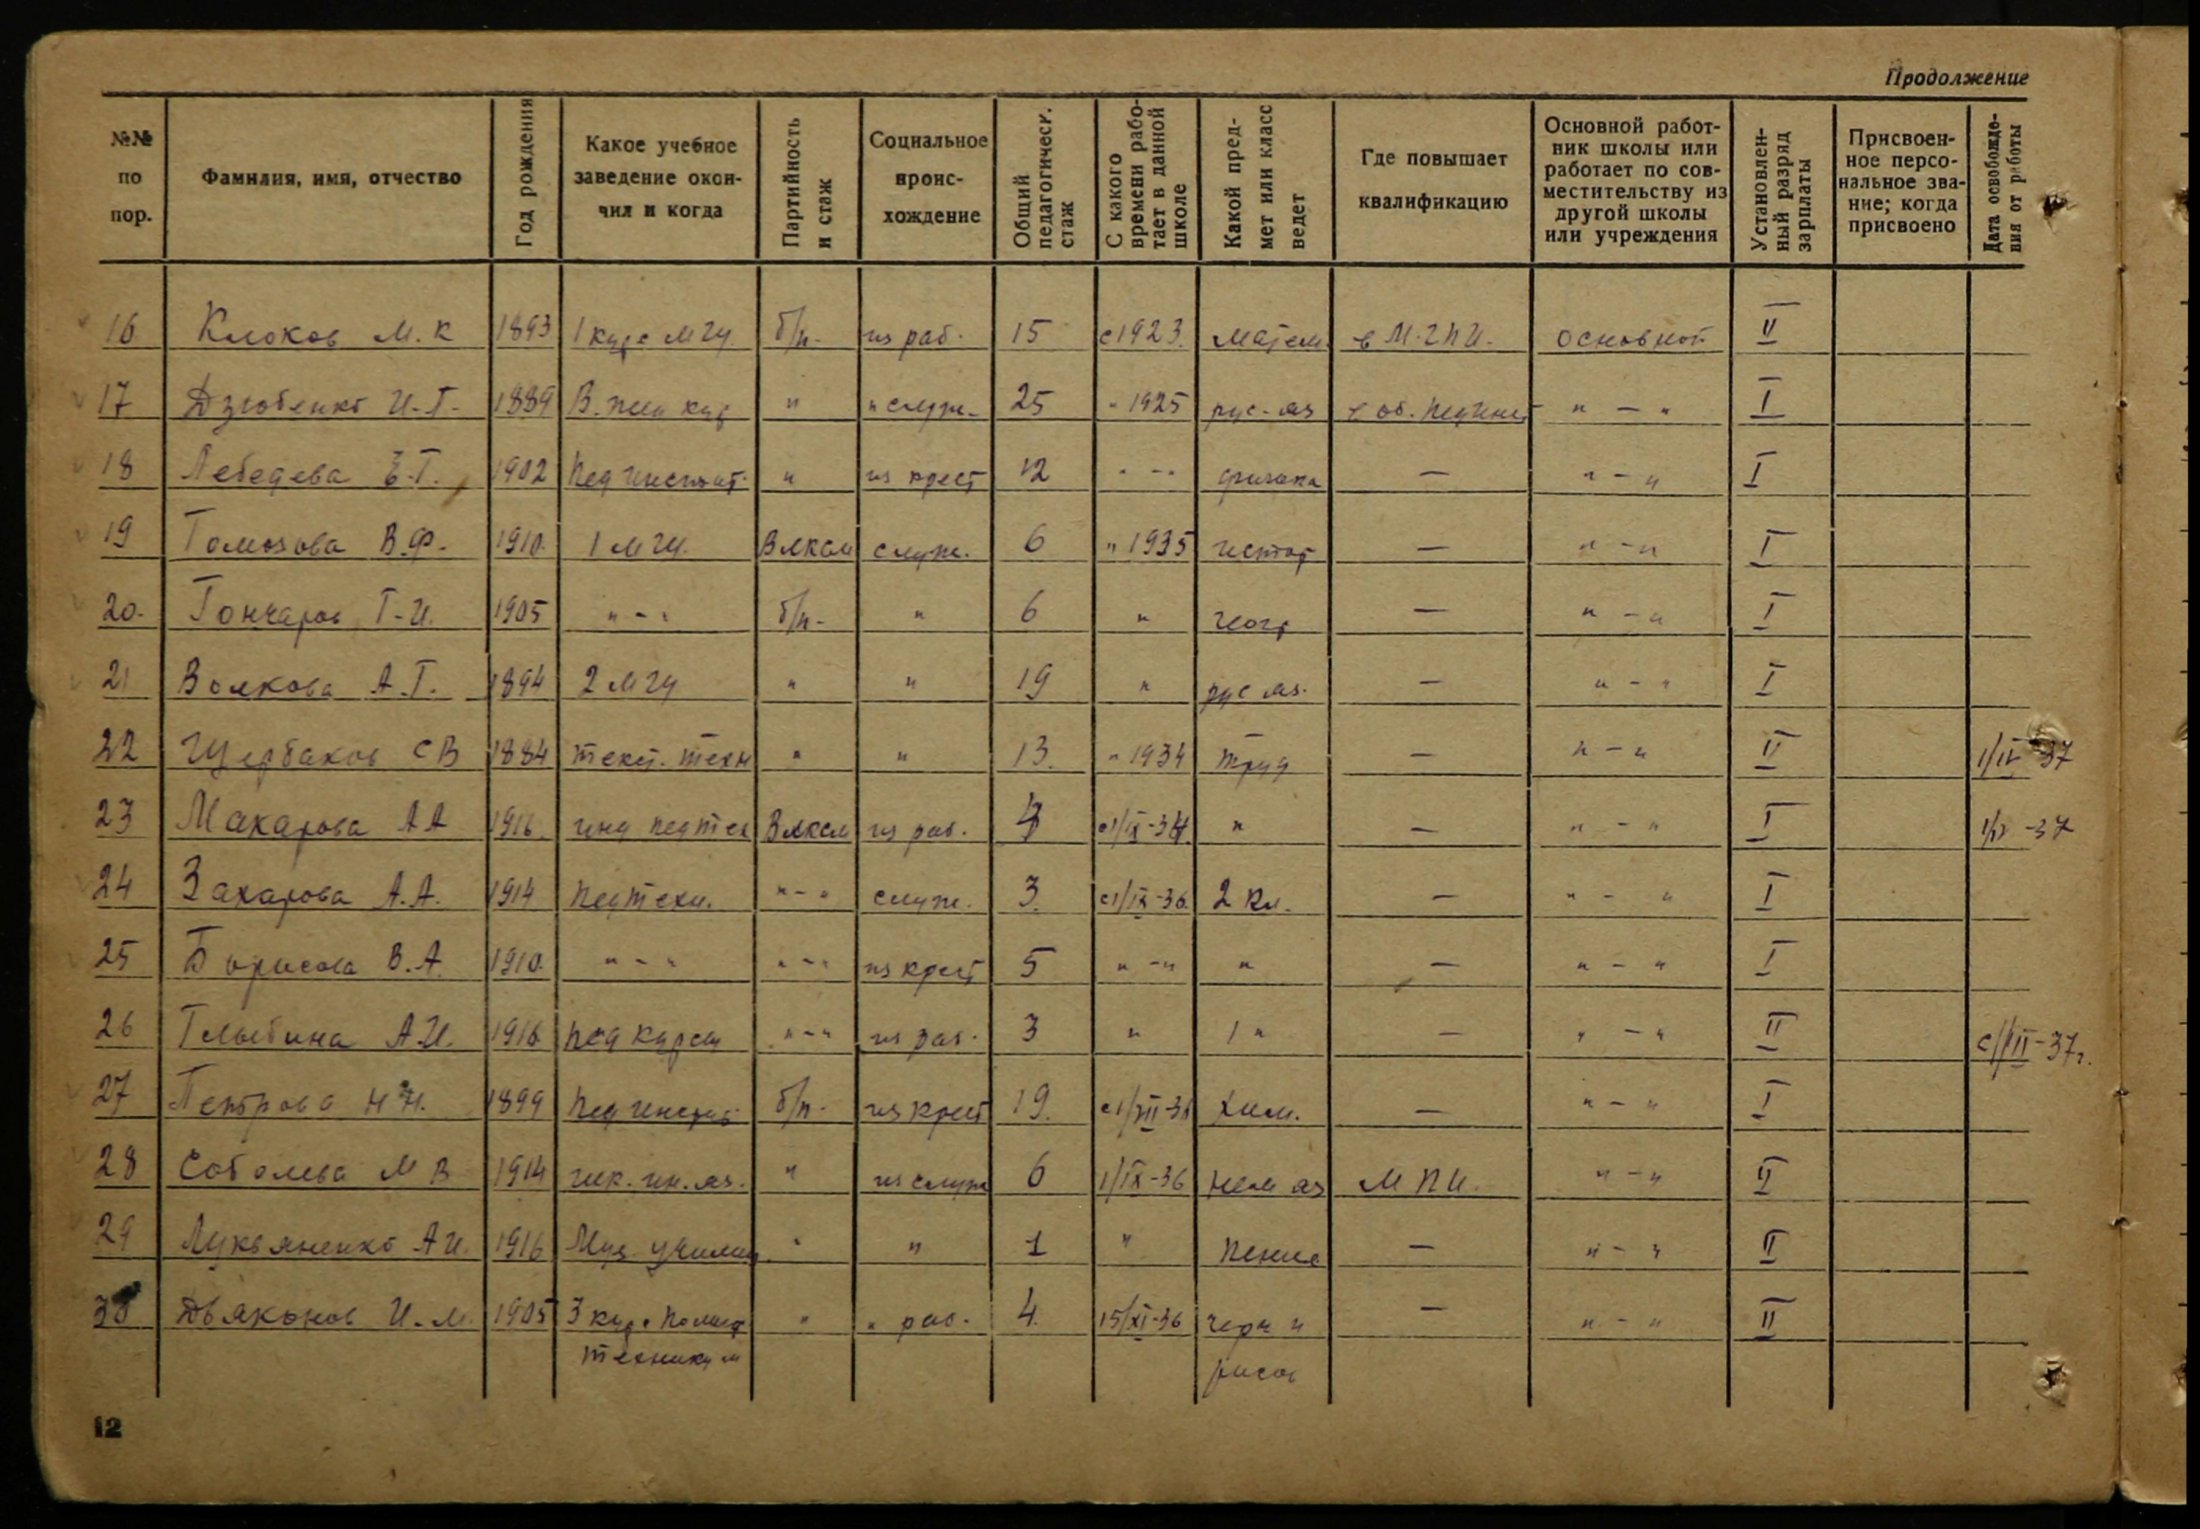 Продолжение
№№ по пор.
Фамилия, имя, отчество
Год рождения
Какое учебное заведение окон- чил и когда
Партийность и стаж
Социальное проис- хождение
Общий педагогическ. стаж
С какого времени рабо- тает в данной школе
Какой пред- мет или класс ведет
Где повышает квалификацию
Основной работ- ник школы или работает по сов- местительству из другой школы или учреждения
Установлен- ный разряд зарплаты
Присвоен- ное персо- нальное зва- ние; когда присвоено
Дата освобожде- ния от работы
16 Клоков М. К 1893 1 курс МГУ. б/п. из раб. 15 с 1923. матем. в М.Г.П.И. основной II
17 Дзюбенко И.Г. 1889 В. жен кур " " служ. 25 " 1925 рус. яз в об. пединст " — " I
18 Лебедева Е.Г. 1902 Пед инстит. " из крест 12 " - " физика — " — " I
19 Томозова В.Ф. 1910. 1 МГУ. Влксм служ. 6 " 1935 истор — " — " I
20. Гончаров Г.И. 1905 " - " б/п. " 6 " геогр — " — " I
21 Волкова А.Г. 1894 2 МГУ " " 19 " рус яз. — " — " I
22 Щербаков С В 1884 текст. техн " " 13. " 1934 труд — " — " II 1/IV 37
23 Макарова А А 1916. инд педтех Влксм из раб. с 1/IX-34 " — " — " I -37
24 Захарова А.А. 1914 Педтехн. " - " служ. 3. с 1/IX-36. 2 кл. — " — " I
25 Борисова В.А. 1910. " - " " - " из крест 5 " - " " — " — " I
26 Глыбина А.И. 1916 пед курсы " - " из раб. 3 " 1 " — " — " II -37г.
27 Петрова Н Н. 1899 Пед инстит б/п. из крест 19. хим. — " — " I
28 Соболева М В 1914 ин. яз. " из служ 6 1/IX-36 нем яз М П И. " — " II
29 Лукьяненко А И. 1916 Муз. училищ. " " 1 " пение — " — " II
30 Дьяконов И. М. 1905 3 курс Полигр " " раб. 4. 15/XI-36 черч и — " — " II
техникум рисов
12